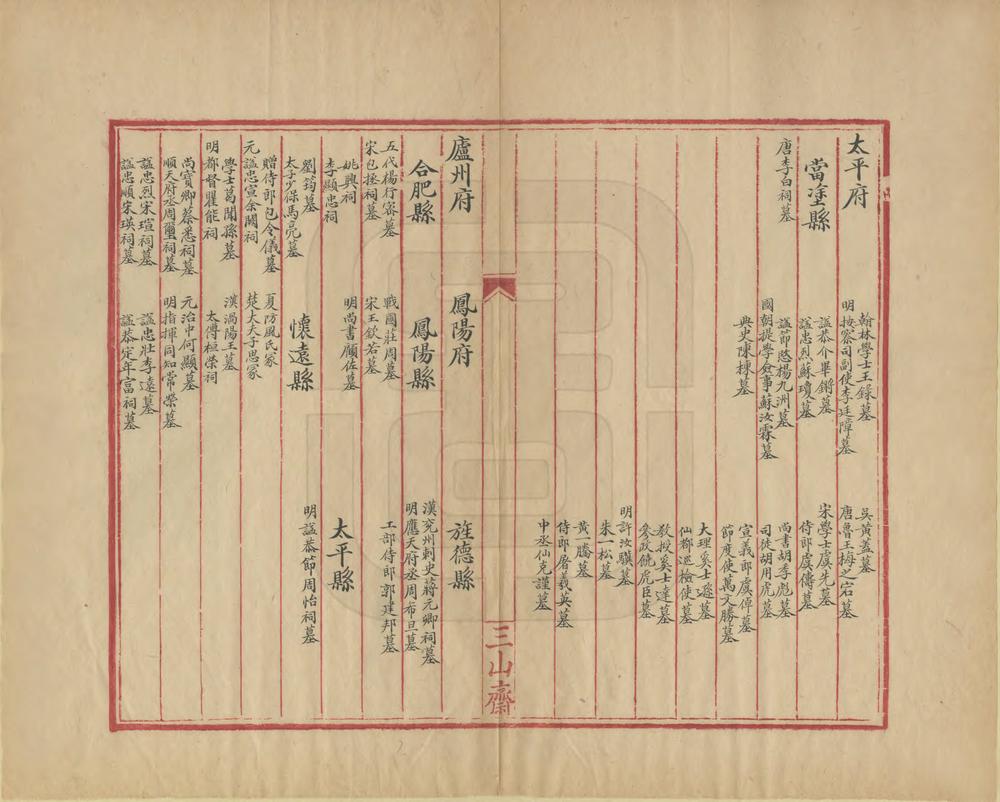 太平府
當塗縣
唐李白祠墓
翰林學士王錄墓
明按察司副使李廷障墓
謚恭介畢鏘墓
謚忠烈蘇瓊墓
謚節愍楊九洲墓
國朝提學僉事蘇汝霖墓
典史陳棟墓
吳黃蓋墓
唐魯王梅之宕墓
宋學士虞先墓
侍郎虞儔墓
尚書胡季彪墓
司徒胡用虎墓
宣義郎虞倬墓
節度使萬文勝墓
大理奚士遜墓
仙都巡檢使墓
教授奚士達墓
參政饒虎臣墓
明許汝驥墓
朱一松墓
黃一騰墓
侍郎屠羲英墓
中丞仙克謹墓
三山齋
廬州府
合肥縣
五代楊行審墓
宋包拯祠墓
姚興祠
李顯忠祠
劉筠墓
太子少保馬亮墓
贈侍郎包令儀墓
元謚忠宣余闕祠
學士葛聞孫墓
明都督瞿能祠
尚寶卿蔡悉祠墓
順天府丞周璽祠墓
謚忠烈宋瑄祠墓
謚忠順宋瑛祠墓
鳳陽府
鳳陽縣
戰國莊周墓
宋王欽若墓
明尚書顧佐墓
懷遠縣
夏防風氏冢
楚大夫子思冢
漢渦陽王墓
太傅桓榮祠
元治中何顯墓
明指揮同知常榮墓
謚忠壯李遠墓
謚恭定年富祠墓
旌德縣
漢兗州刺史蔣元卿祠墓
明應天府丞周希旦墓
工部侍郎郭建邦墓
太平縣
明謚恭節周怡祠墓